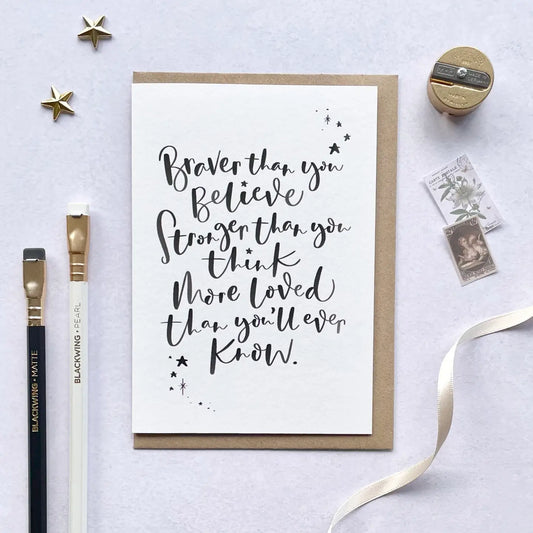 Braver than you
Believe
Stronger than you
think
More loved
than you'll ever
know.
BLACKWING • MATTE
BLACKWING • PEARL
CARTE POSTALE